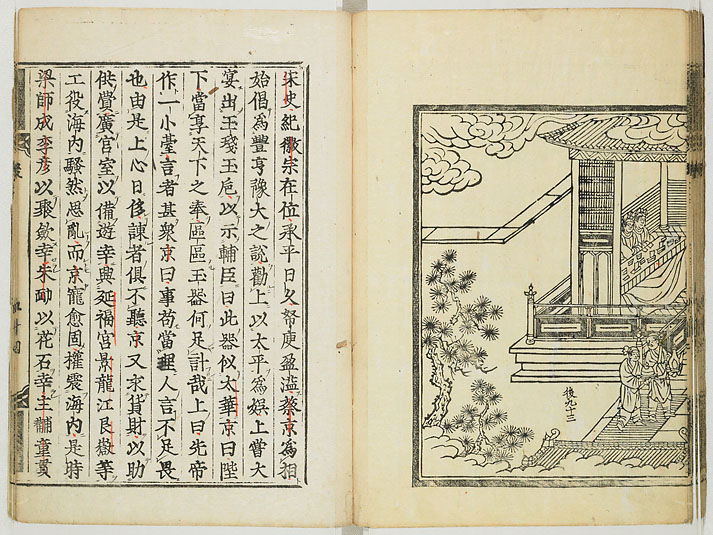 後九十三
宋史紀徽宗在位承平日久帑庾盈溢蔡京爲相
始倡爲豐亨豫大之説勸上以太平爲娯上嘗大
宴出玉琖玉巵以示輔臣曰此器似太華京曰陛
下當享天下之奉區區玉器何足計哉上曰先帝
作一小臺言者甚衆京曰事苟當理人言不足畏
也由是上心日侈諌者俱不聽京又求貨財以助
供費廣宮室以備遊幸興延福宮景龍江艮嶽等
工役海内騷然思亂而京寵愈固權震海内是時
梁師成李彦以聚歛幸朱勔以花石幸王黼童貫